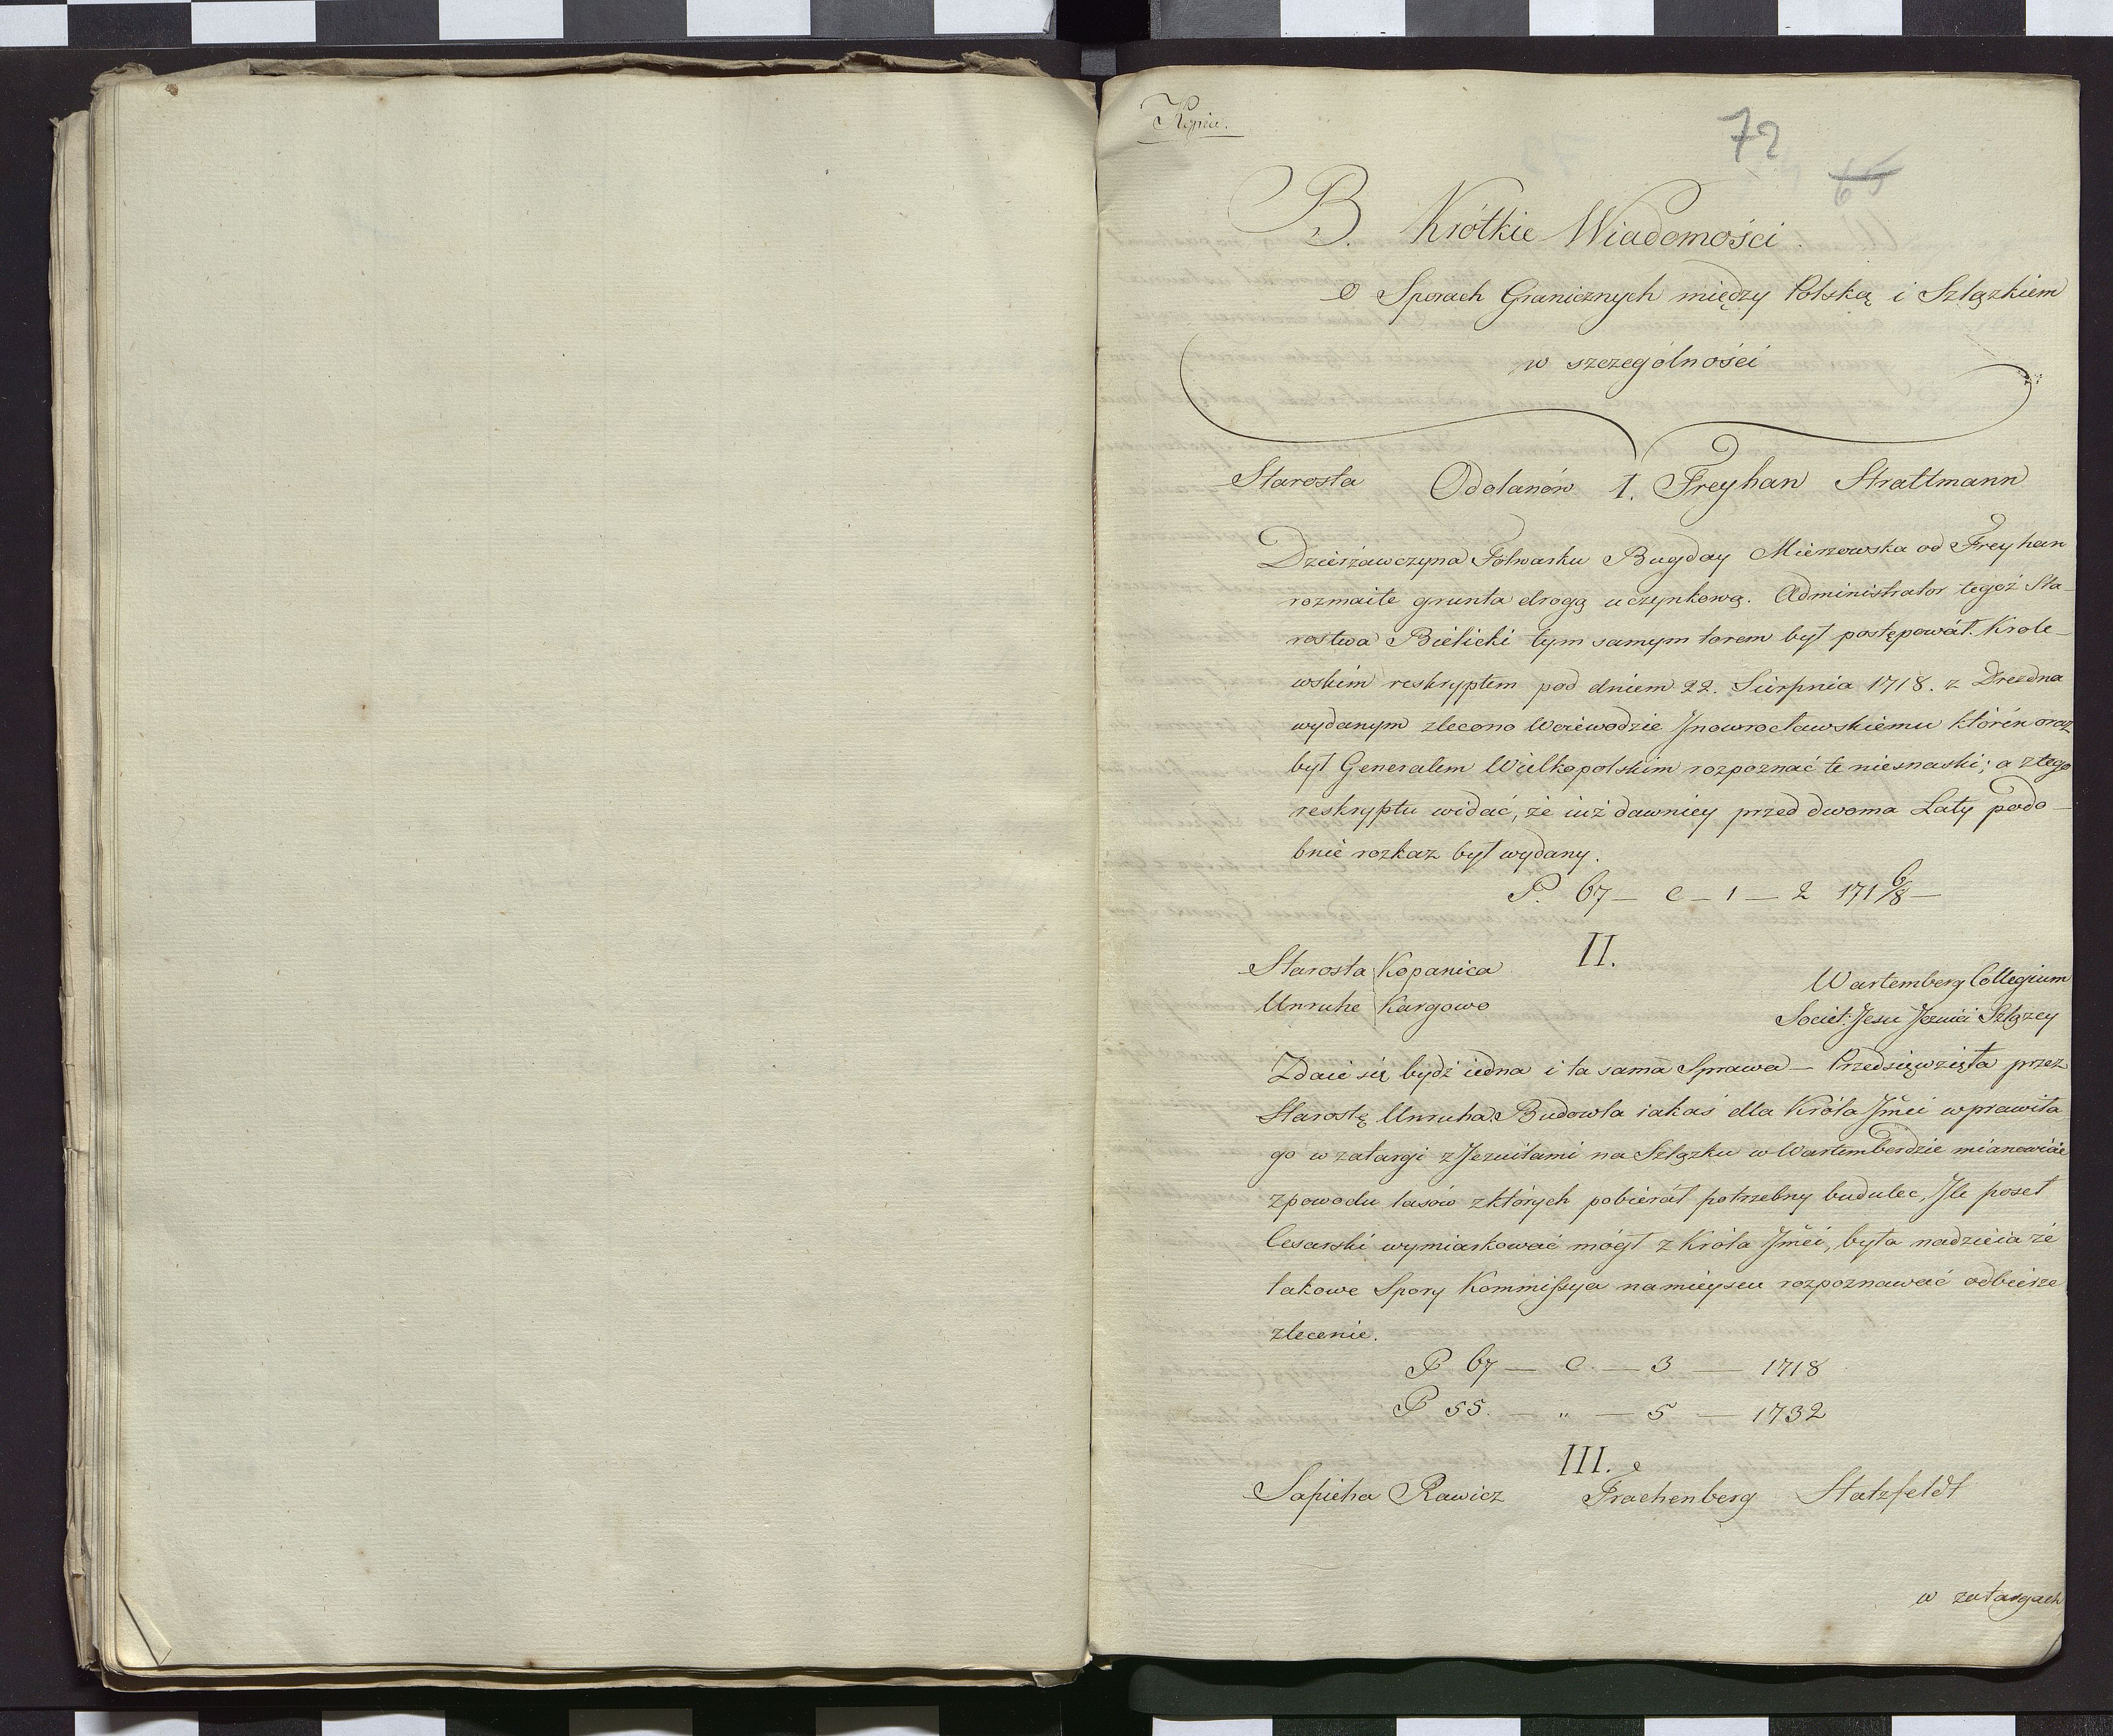 Kopia.
72
65
B. Krótkie Wiadomości
o Sporach Granicznych między Polską i Szlązkiem
w szczególności
Starosta Odolanów I. Freyhan Strattmann
Dzierżawczyna Folwarku Bugday Mierzowska od Freyhan
rozmaite grunta drogą uczynkową. Administrator tegoż Sta-
rostwa Bielicki tym samym torem był postępował. Krole-
wskim reskryptem pod dniem 22. Sierpnia 1718. z Drezna
wydanym zlecono Woiewodzie Jnowrocławskiemu którén oraz
był Generałem Wielkopolskim rozpoznać te niesnaski; a z tego
reskryptu widać, że iuż dawniey przed dwoma Laty podo-
bnie rozkaz był wydany.
P. 67 — C — 1 — 2 171 6/8 —
II.
Starosta Kopanica
Wartemberg Collegium
Unruhe Kargowo
Societ: Jesu Jezuici Szlązcy
Zdaie się bydź iedna i ta sama Sprawa — Przedsięwzięta przez
Starostę Unruha Budowla iakaś dla Króla Jmci wprawiła
go w zatargi z Jezuitami na Szlązku w Wartemberdzie mianowicie
z powodu lasów z których pobierał potrzebny budulec, Jle poseł
Cesarski wymiarkować mógł z Króla Jmci, była nadzieia że
takowe Spory Kommissya na mieyscu rozpoznawać odbierze
zlecenie.
P 67 — C — 3 — 1718
P 55. — " — 5 — 1732
III.
Sapieha Rawicz Trachenberg Hatzfeldt
w zatargach